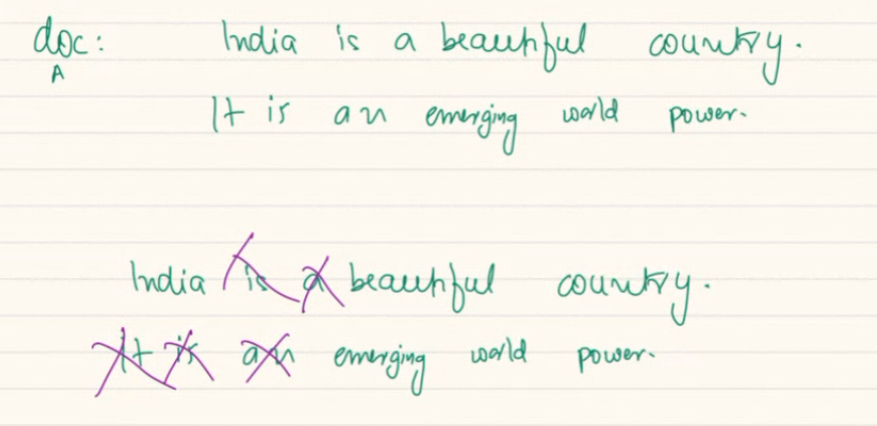 doc: India is a beautiful country.
A
It is an emerging world power.
India is a beautiful country.
It is an emerging world power.